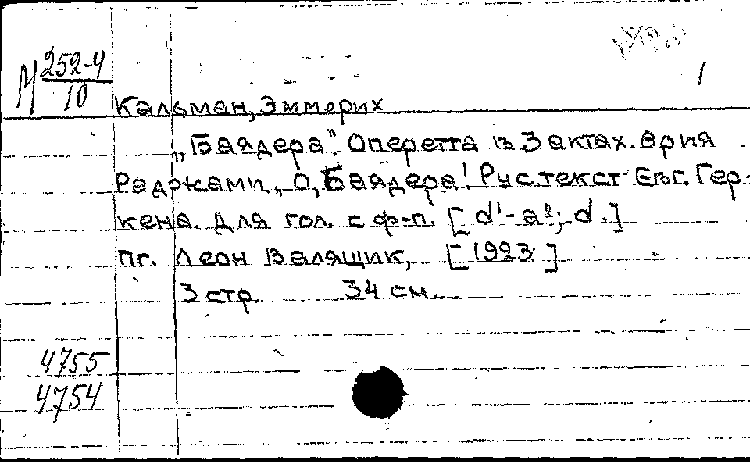 М 252-4
10
1
Кальман, Эммерих
„Баядера". Оперетта в 3 актах. Ария
Раджами „О, Баядера! Рус. текст Евг. Гер-
кена. Для гол. с ф-п. [d¹-a²; d.]
Пг. Леон Валящик, [1923]
3 стр. 34 см.
4755
4754